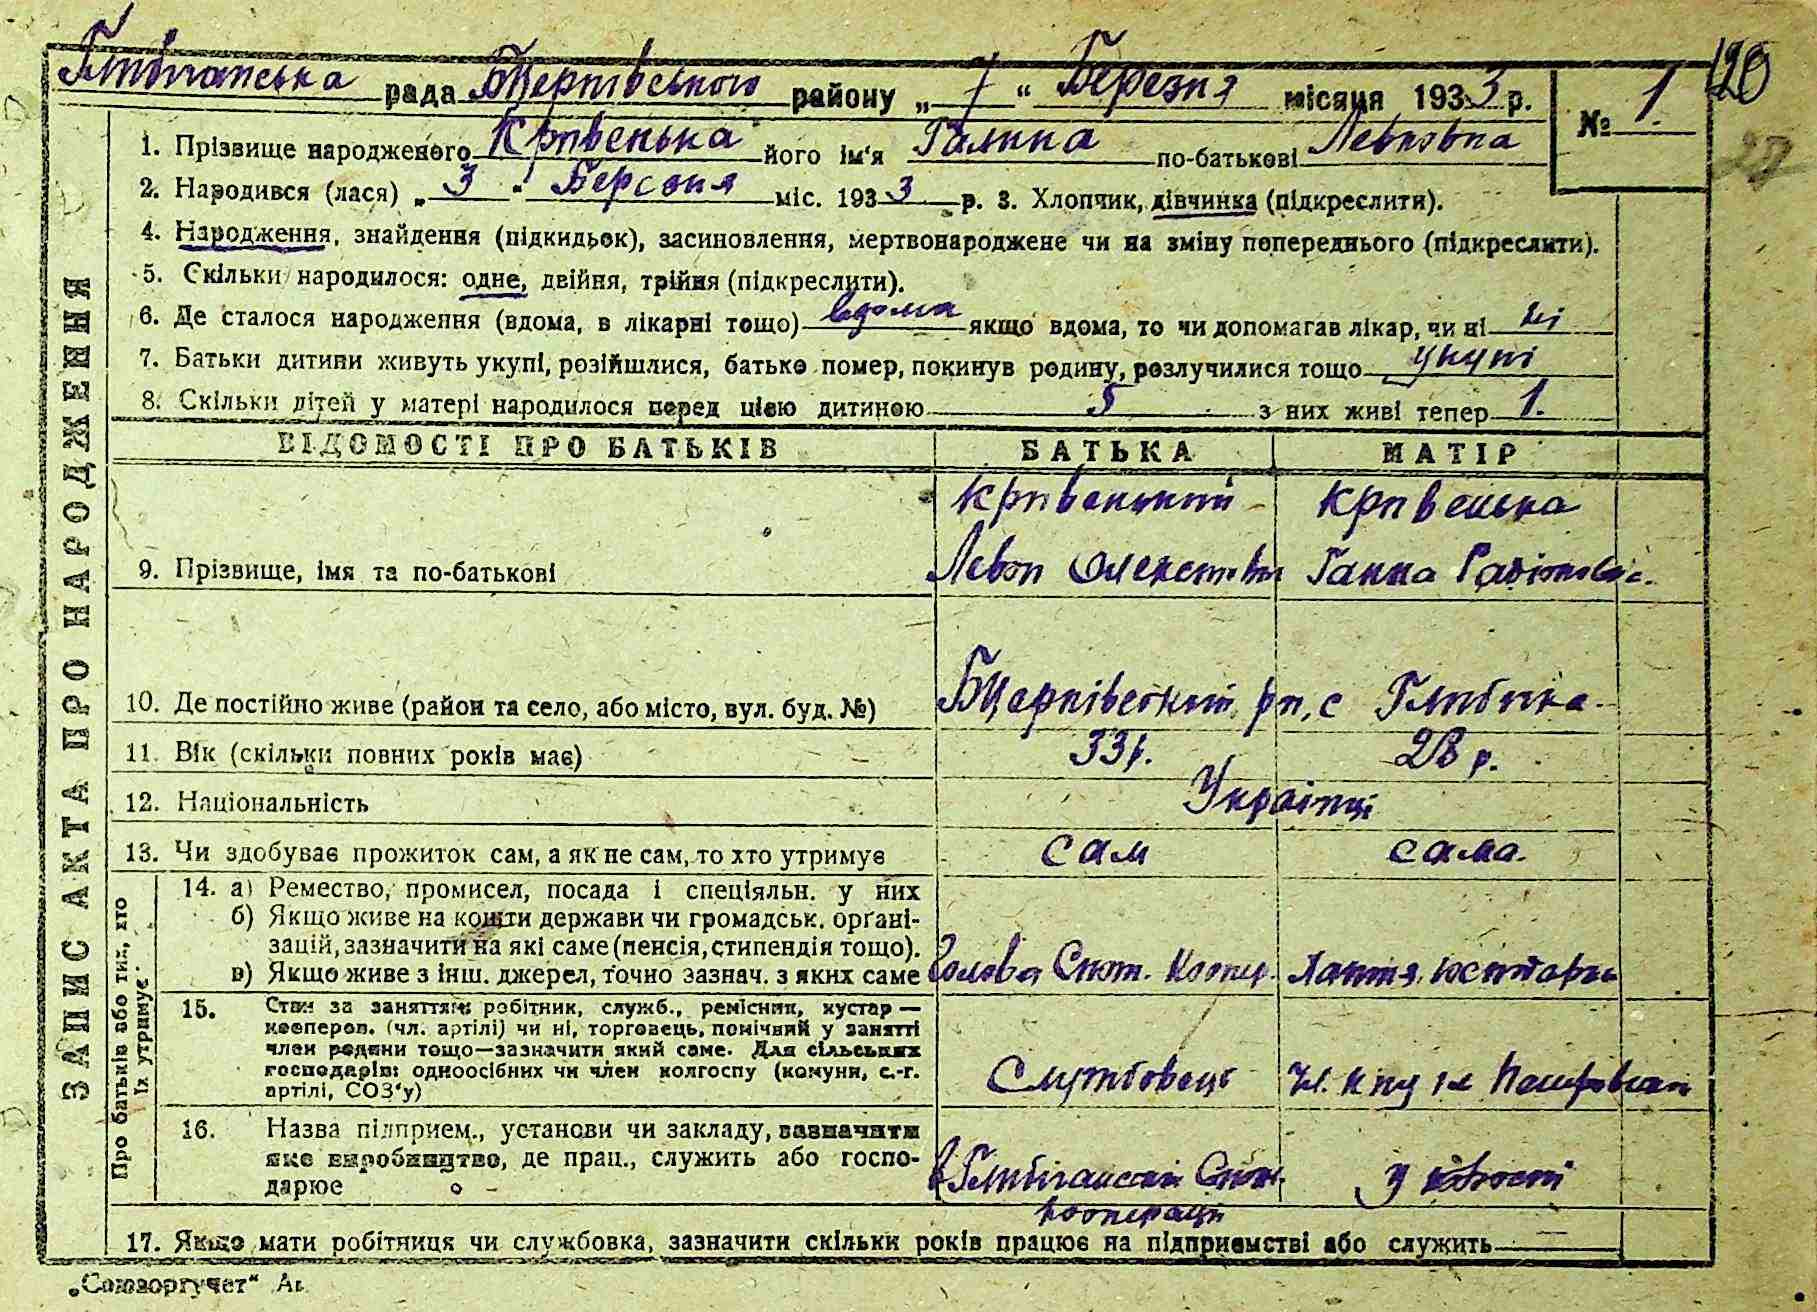 Глибочанська рада Бщертівського району „ 7 “ Березня місяця 1933 р.
№ 1
120
27
ЗАПИС АКТА ПРО НАРОДЖЕННЯ
1. Прізвище народженого Кривенька його ім'я Галина по-батькові Левковна
2. Народився (лася) „ 3 " Березня міс. 1933 р. 3. Хлопчик, дівчинка (підкреслити).
4. Народження, знайдення (підкидьок), засиновлення, мертвонароджене чи на зміну попереднього (підкреслити).
5. Скільки народилося: одне, двійня, трійня (підкреслити).
6. Де сталося народження (вдома, в лікарні тощо) вдома якщо вдома, то чи допомагав лікар, чи ні ні
7. Батьки дитини живуть укупі, розійшлися, батько помер, покинув родину, розлучилися тощо укупі
8. Скільки дітей у матері народилося перед цією дитиною 5 з них живі тепер 1.
ВІДОМОСТІ ПРО БАТЬКІВ БАТЬКА МАТІР
Кривенький Кривенька
9. Прізвище, імя та по-батькові Левон Ганна
10. Де постійно живе (район та село, або місто, вул. буд. №) рн, с
11. Вік (скільки повних років має) 33 р. 28 р.
12. Національність Українці
13. Чи здобуває прожиток сам, а як не сам, то хто утримує сам сама.
Про батьків або тих, хто їх утримує
14. а) Ремество, промисел, посада і спеціяльн. у них
б) Якщо живе на кошти держави чи громадськ. органі-
зацій, зазначити на які саме (пенсія, стипендія тощо).
в) Якщо живе з інш. джерел, точно зазнач. з яких саме Голова Спож. Коопер.
15. Стан за заняттям: робітник, служб., ремісник, кустар —
коoперов. (чл. артілі) чи ні, торговець, помічний у занятті
член родини тощо—зазначити який саме. Для сільських
господарів: одноосібних чи член колгоспу (комуни, с.-г. Службовець
артілі, СОЗ'у)
16. Назва підприєм., установи чи закладу, зазначити
яке виробництво, де прац., служить або госпо-
дарює Спож. у
кооперації
17. Якщо мати робітниця чи службовка, зазначити скільки років працює на підприємстві або служить
„Союзоргучет“